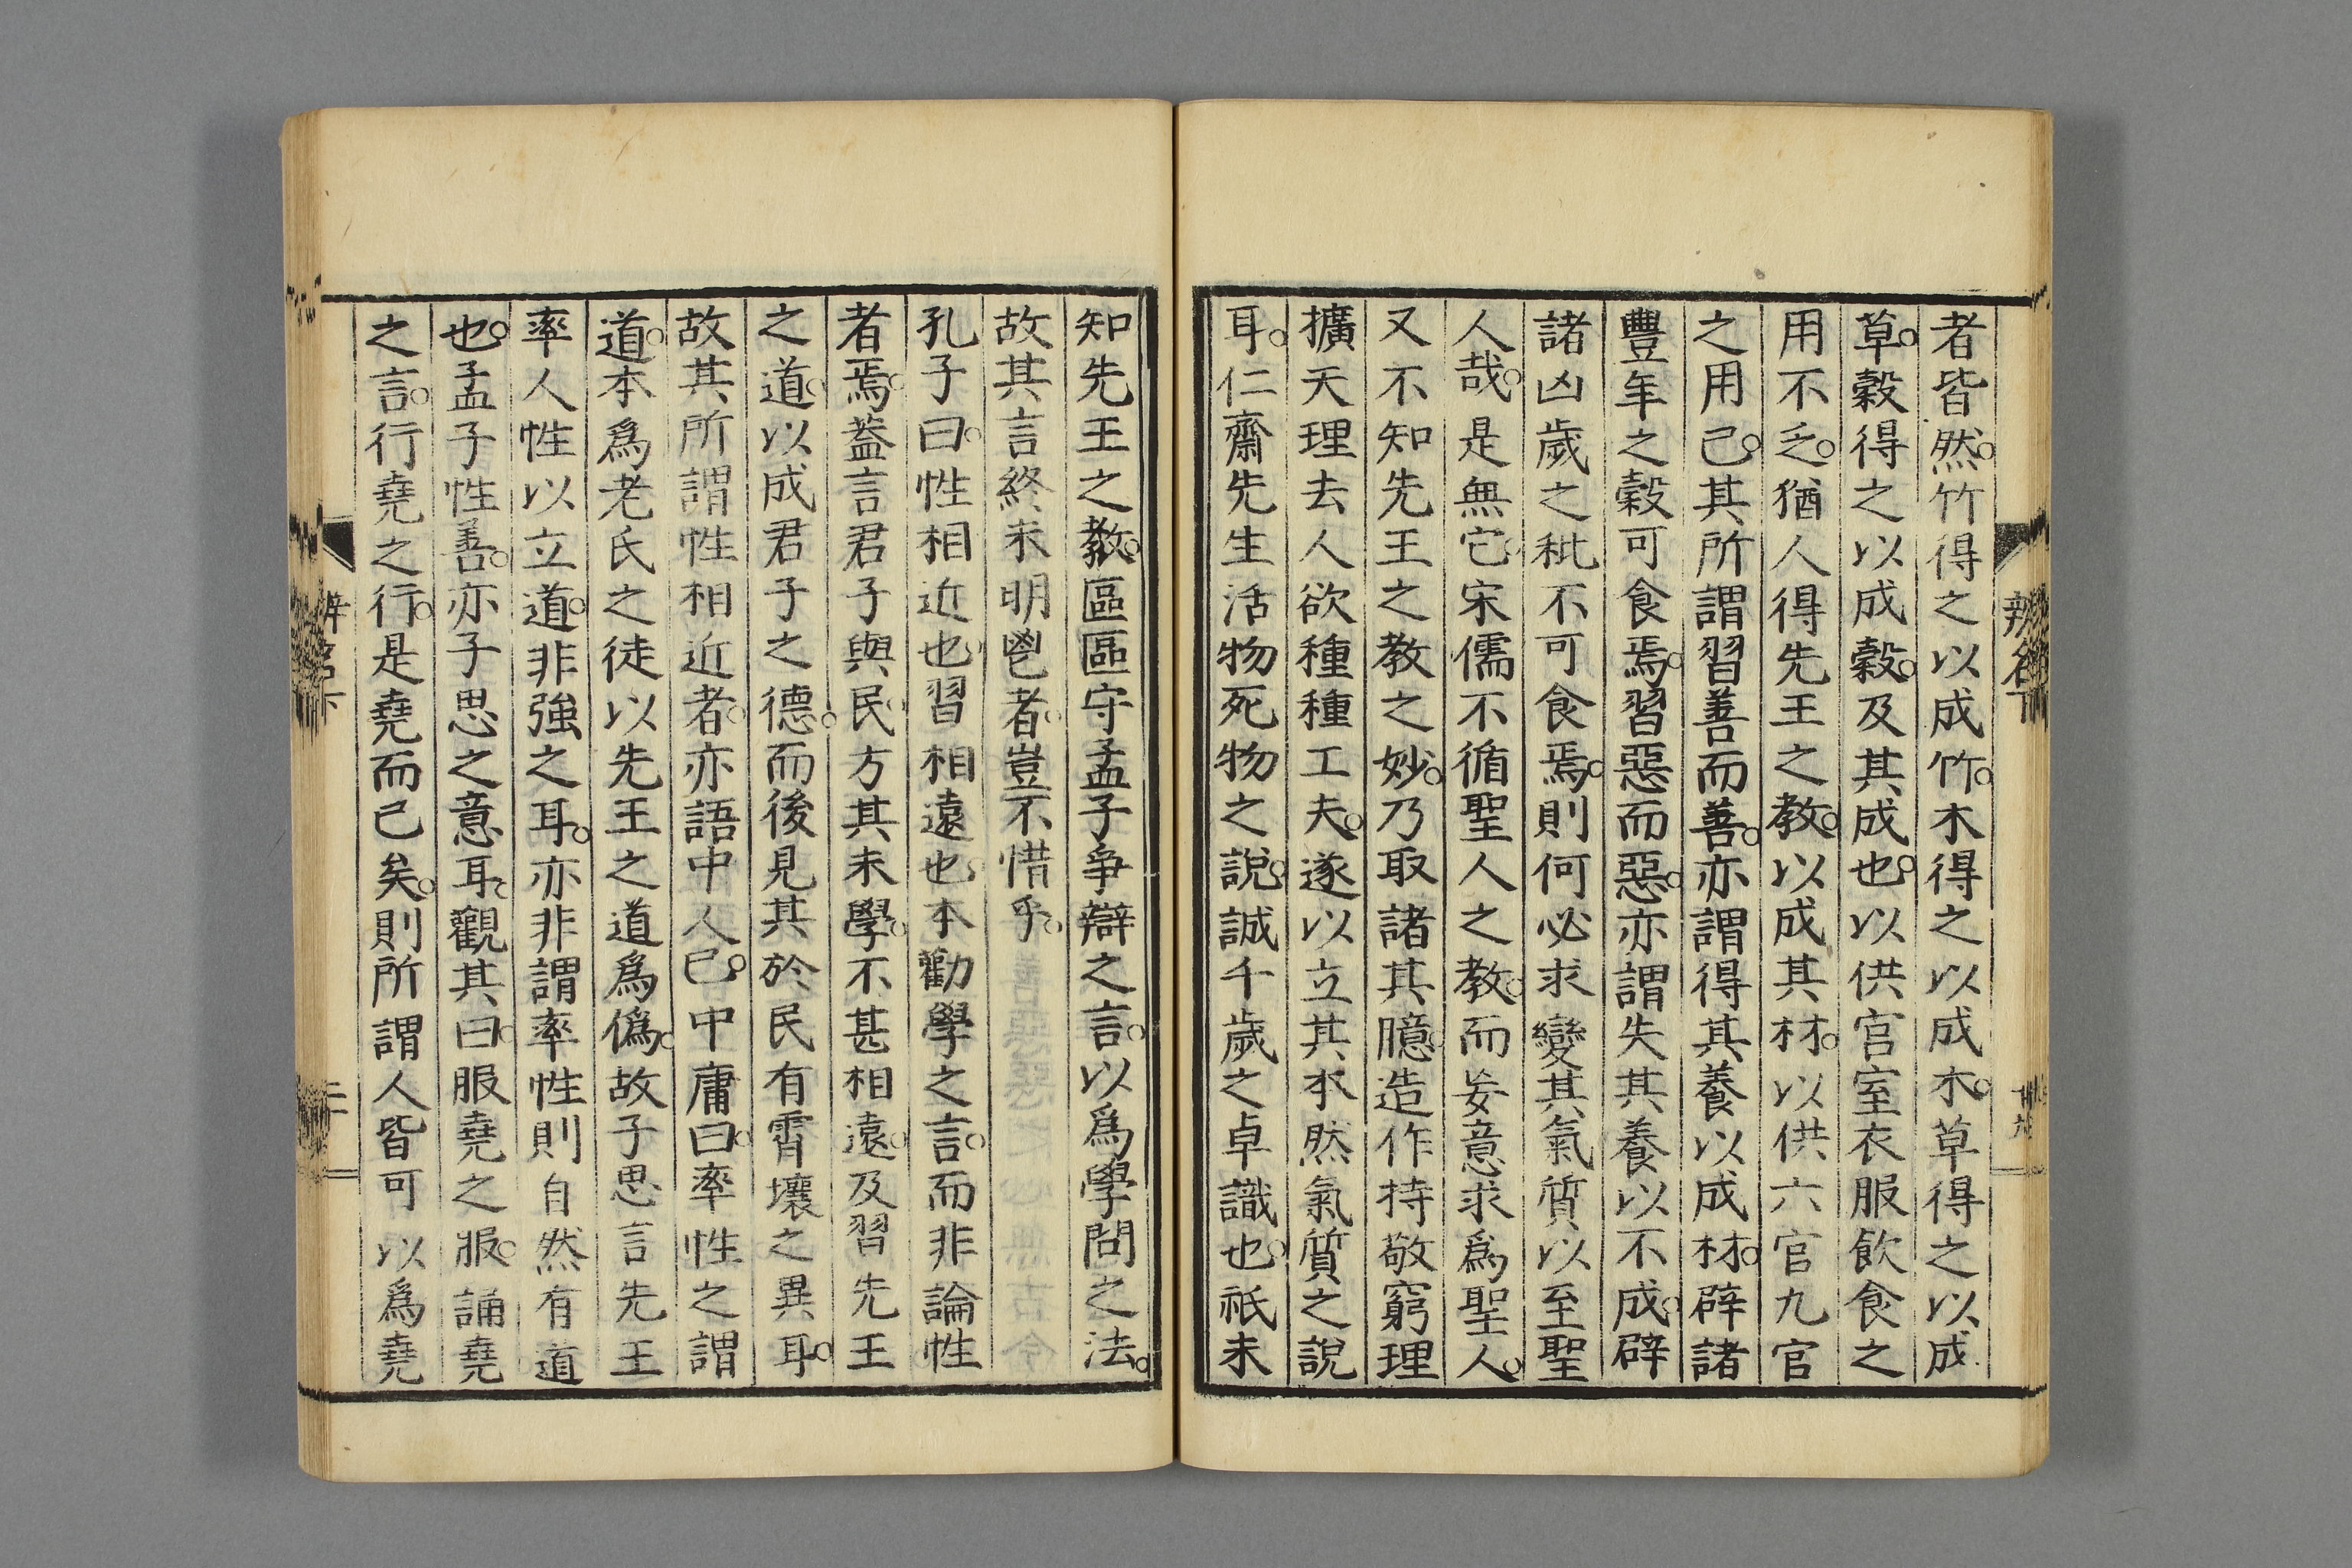 者皆然。竹得之以成竹。木得之以成木。草得之以成
草。穀得之以成穀。及其成也。以供宮室衣服飲食之
用不乏。猶人得先王之教。以成其材。以供六官九官
之用已。其所謂習善而善。亦謂得其養以成材。辟諸
豐年之穀可食焉。習惡而惡。亦謂失其養以不成。辟
諸凶歲之秕不可食焉。則何必求變其氣質以至聖
人哉。是無它。宋儒不循聖人之教。而妄意求爲聖人。
又不知先王之教之妙。乃取諸其臆。造作持敬窮理
擴天理去人欲種種工夫。遂以立其本然氣質之說
耳。仁齋先生活物死物之說。誠千歲之卓識也。祇未
知先王之教。區區守孟子爭辯之言。以爲學問之法。
故其言終未明鬯者。豈不惜乎。
孔子曰。性相近也。習相遠也。本勸學之言。而非論性
者焉。葢言君子與民。方其未學。不甚相遠。及習先王
之道。以成君子之德。而後見其於民有霄壤之異耳。
故其所謂性相近者。亦語中人已。中庸曰。率性之謂
道。本爲老氏之徒以先王之道爲僞。故子思言先王
率人性以立道。非強之耳。亦非謂率性則自然有道
也。孟子性善。亦子思之意耳。觀其曰。服堯之服。誦堯
之言。行堯之行。是堯而已矣。則所謂人皆可以爲堯
辨名下